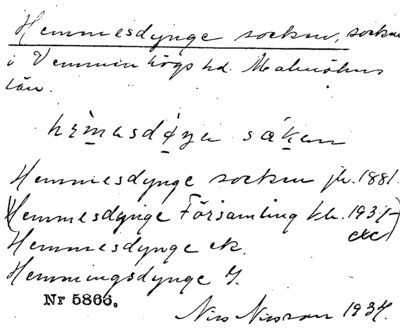 Hemmesdynge socken, socken
i Vemmenhögs hd. Malmöhus
län.
Hemmesdynge socken jb. 1881.
Hemmesdynge Församling kb. 1934
etc)
Hemmesdynge sk.
Hemmingsdynge J.
Nr 5866.
Nils Nilsson 1934.